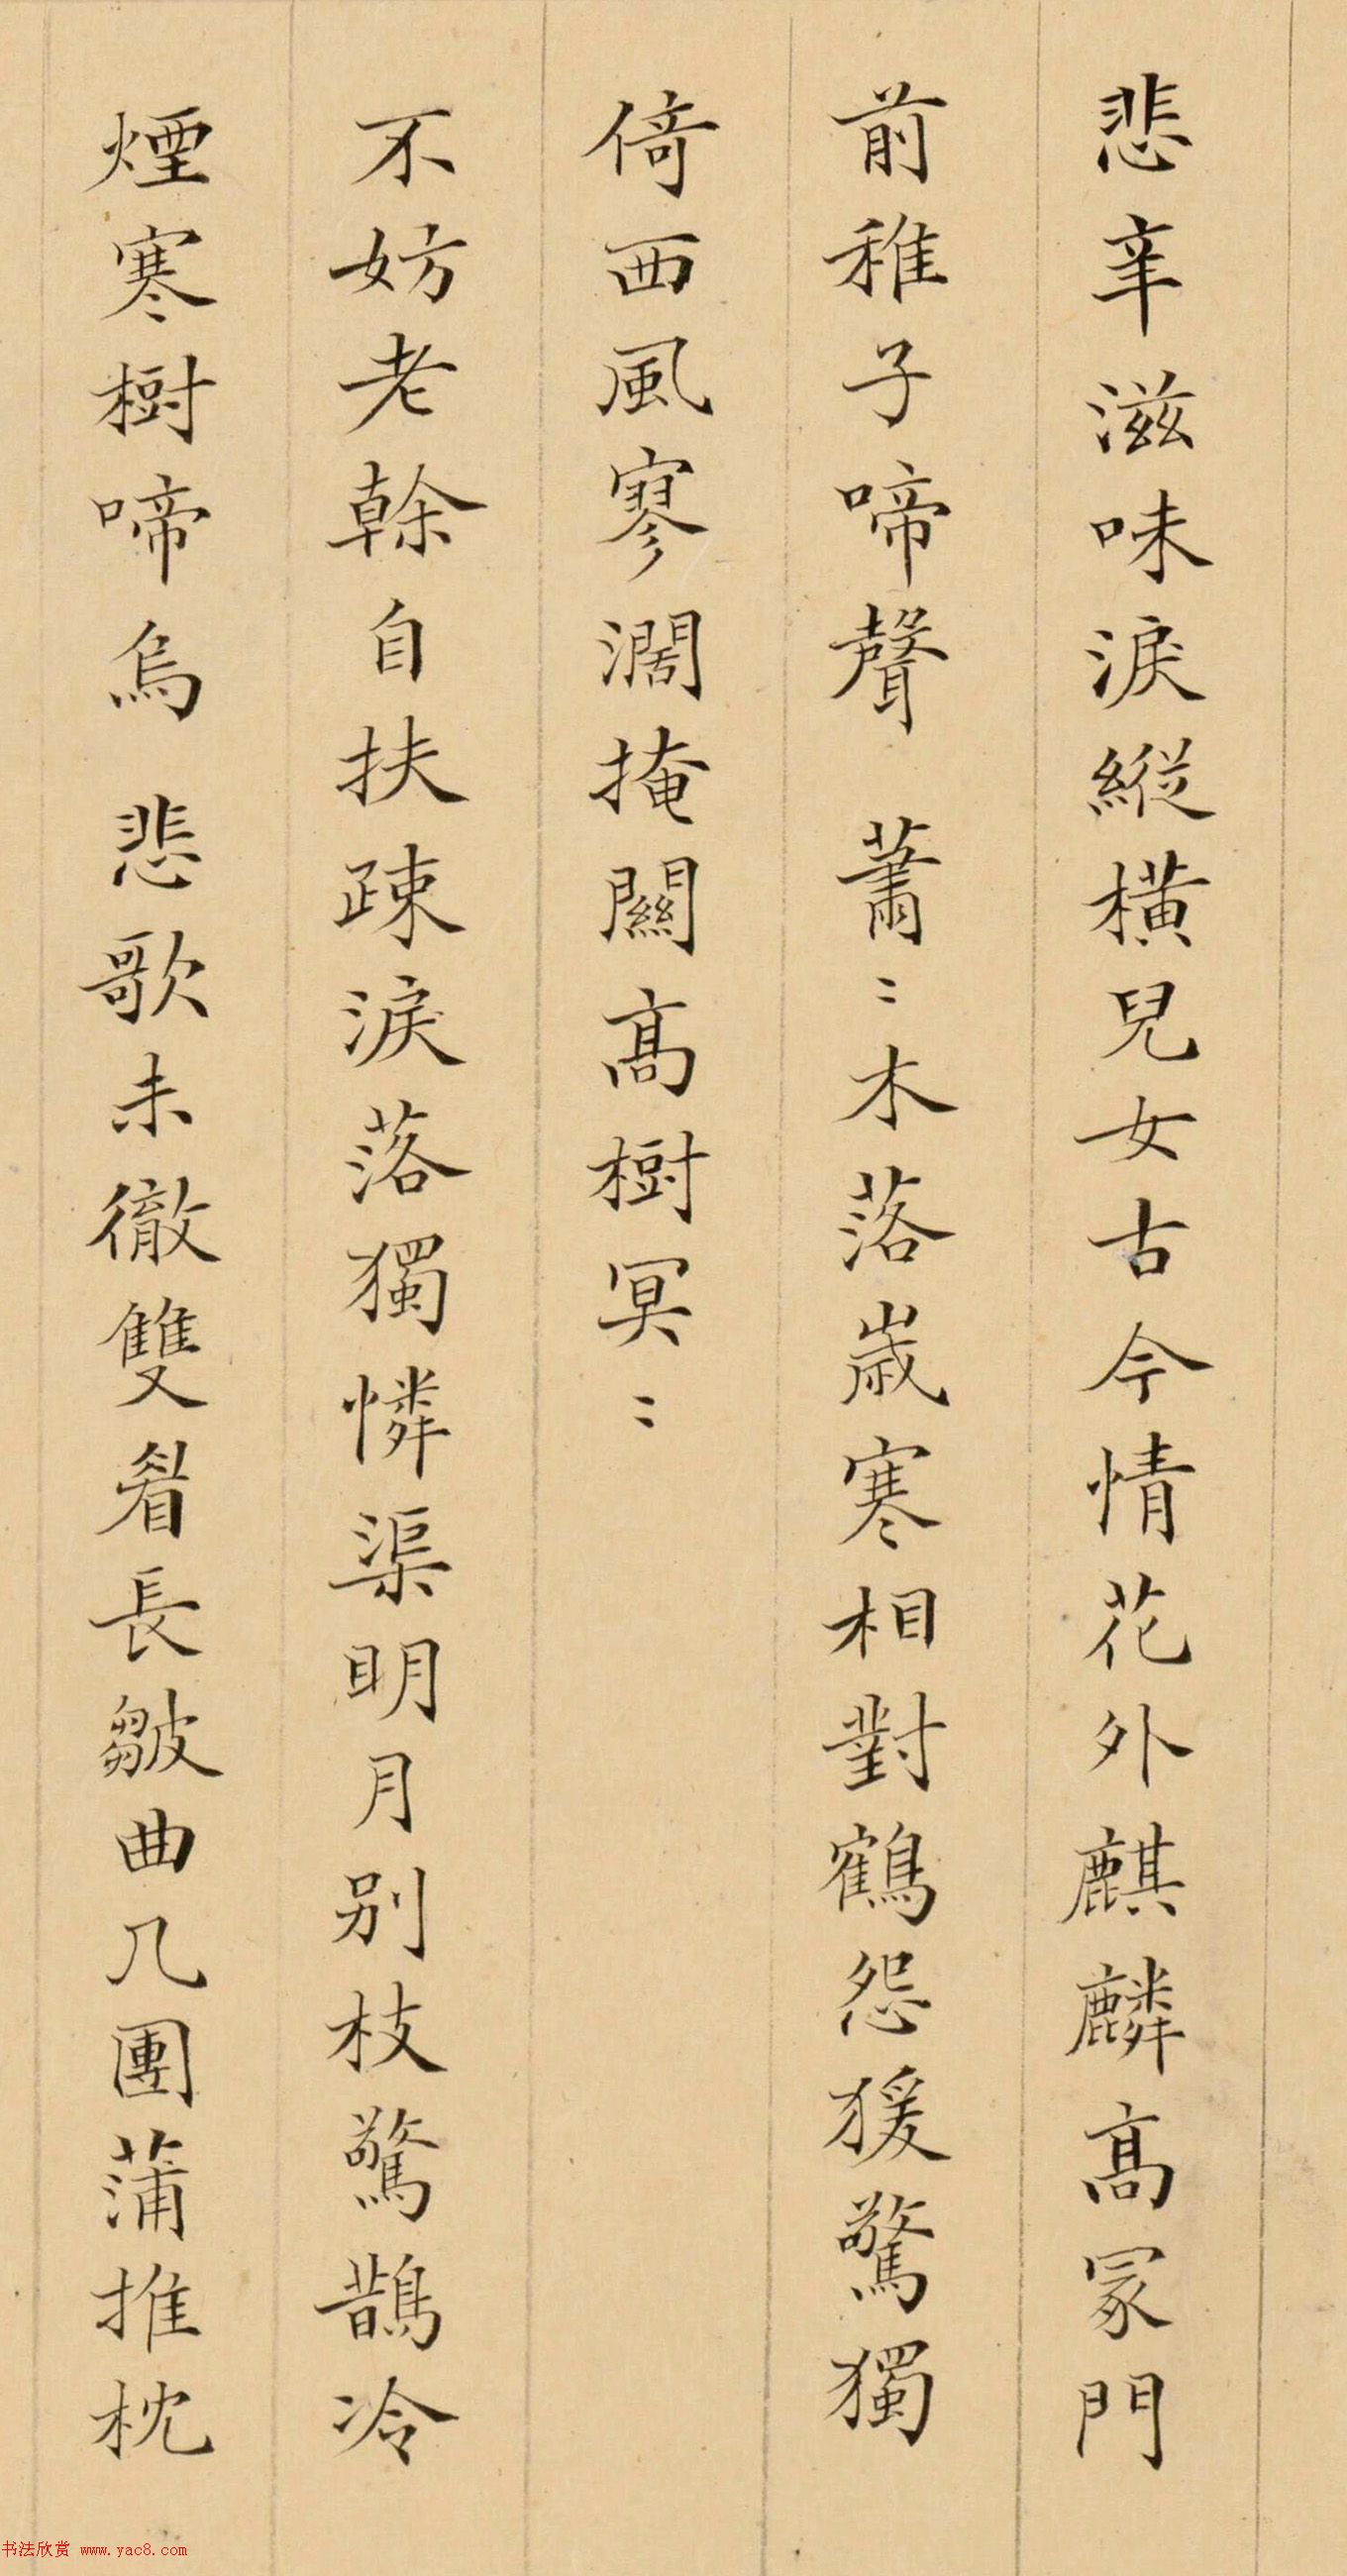 悲辛滋味淚縱橫兒女古今情花外麒麟高冢門
前稚子啼聲 蕭〻木落歲寒相對鶴怨猨驚獨
倚西風寥濶掩關高樹冥〻
不妨老榦自扶疎淚落獨憐渠明月别枝驚鵲冷
煙寒樹啼烏 悲歌未徹雙眉長皺曲几團蒲推枕
书法欣赏 www.yac8.com